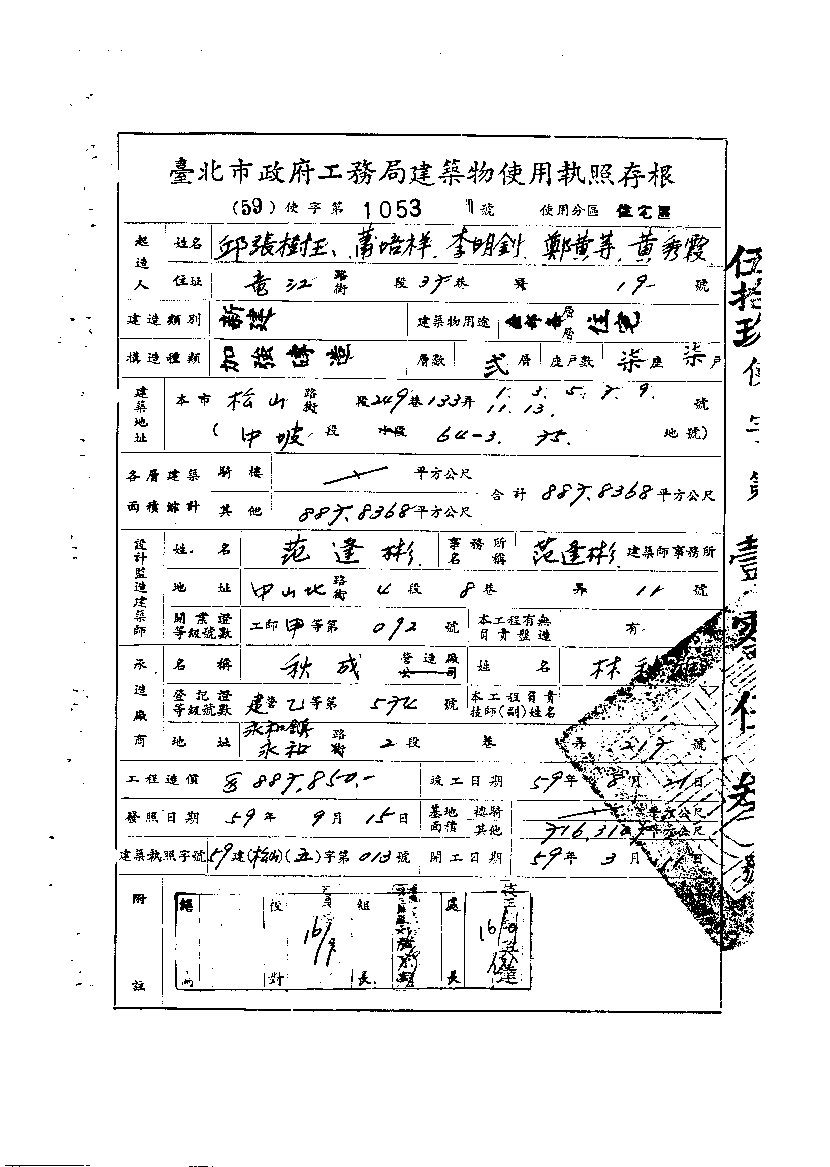 臺北市政府工務局建築物使用執照存根
(59)使字第1053號 使用分區 住宅區
起造人 姓名 邱張樹玉、蕭培祥 李明釗 鄭黃 黃秀霞
住址 竜江路街 段37巷 號 19 號
建造類別 新建 建築物用途 層層 住宅
構造種類 加強磚造 層數 弍層 座戶數 柒座 柒戶
建築地址 本市 松山路街 段249巷133弄 1. 3. 5. 7. 9. 11. 13. 號
(中坡 段 小段 64-3. 75. 地號)
各層建築面積總計 騎樓 平方公尺 合計 887.8368平方公尺
其他 887.8368平方公尺
設計監造建築師 姓名 范逢彬 事務所名稱 范逢彬 建築師事務所
地址 中山北路街 4段 8巷 弄 11 號
開業證等級號數 工師甲等第 092 號 本工程有無負責監造 有
承造廠商 名稱 秋成 營造廠公司 姓名 林秋
登記證等級號數 建營乙等第 574 號 本工程負責技師(副)姓名
地址 永和鎮永和路街 2段 巷 弄 217 號
工程造價 887,850.- 竣工日期 59年 8月 21日
發照日期 59年 9月 15日 基地面積 騎樓 平方公尺
其他 平方公尺
建築執照字號 59建(松山)(五)字第013號 開工日期 59年 3月 11日
附註
校對 16/9 組長 處長 16/9
伍拾玖使字第壹零伍叁